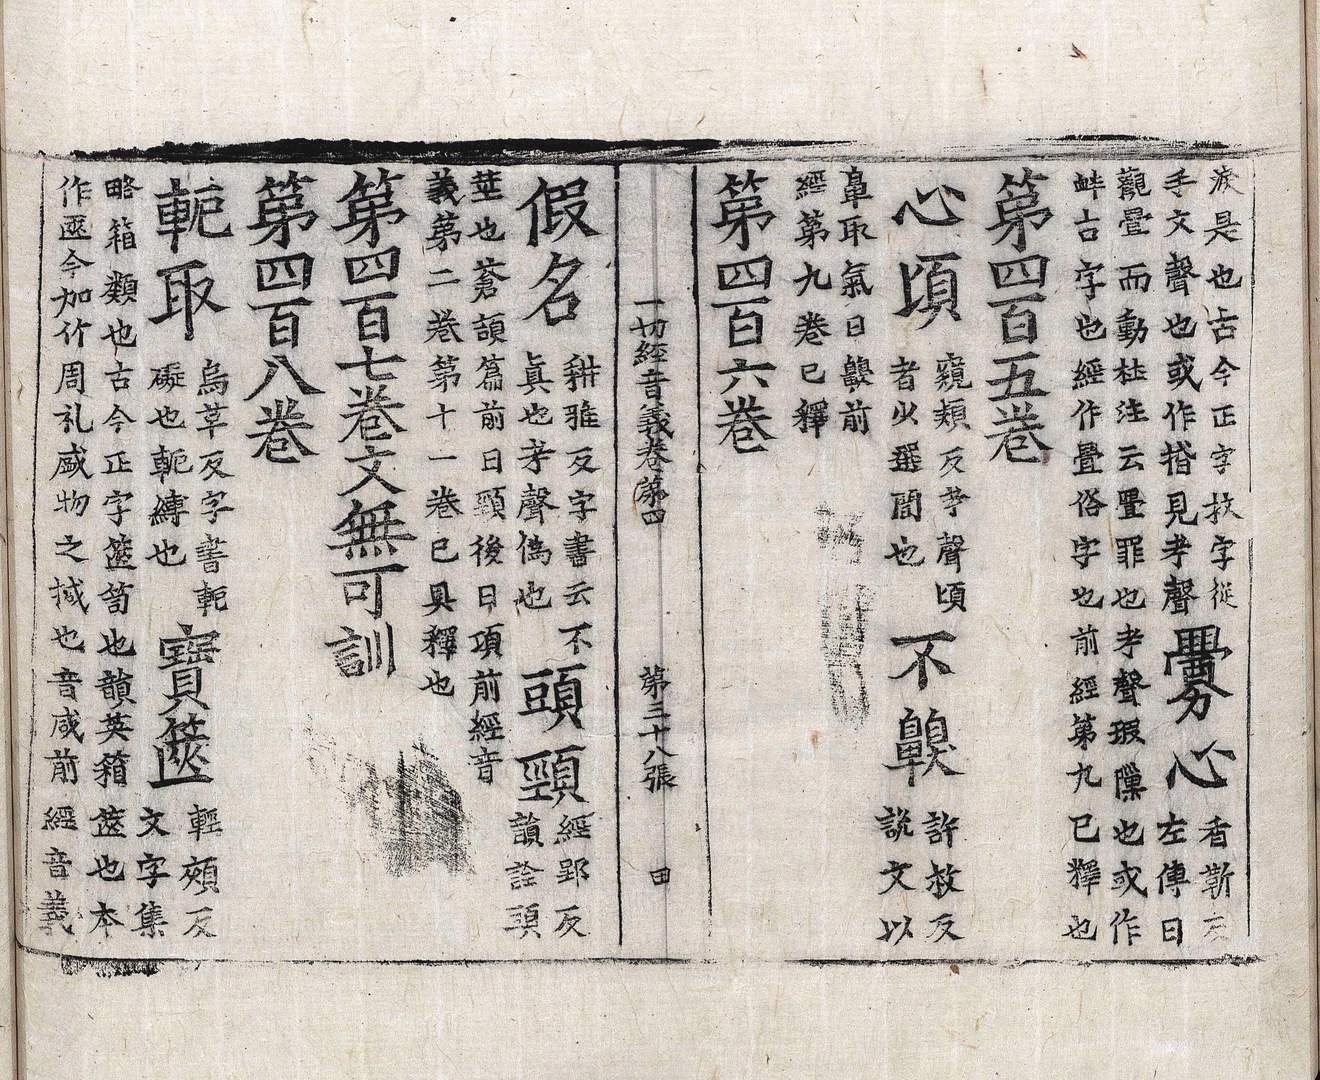 淚是也古今正字扙字從
手文聲也或作捁見孝聲
釁心
香靳反
左傳曰
觀釁而動杜注云釁罪也考聲瑕隟也或作
衅古字也經作舋俗字也前經第九已釋也
第四百五卷
心頃
窺頴反考聲頃
者少選間也
不齅
許救反
說文以
鼻取氣曰齅前
經第九卷已釋
第四百六卷
一切經音義卷第四
第三十八張
田
假名
耕雅反字書云不
真也考聲僞也
頭頸
經郢反
韻詮頭
莖也蒼頡篇前曰頸後曰項前經音
義第二卷第十一卷已具釋也
第四百七卷文無可訓
第四百八卷
軛取
烏革反字書軛
礙也軛縛也
寶篋
輕頰反
文字集
略箱類也古今正字篋笥也韻英箱篋也本
作匧今加竹周礼盛物之椷也音咸前經音義